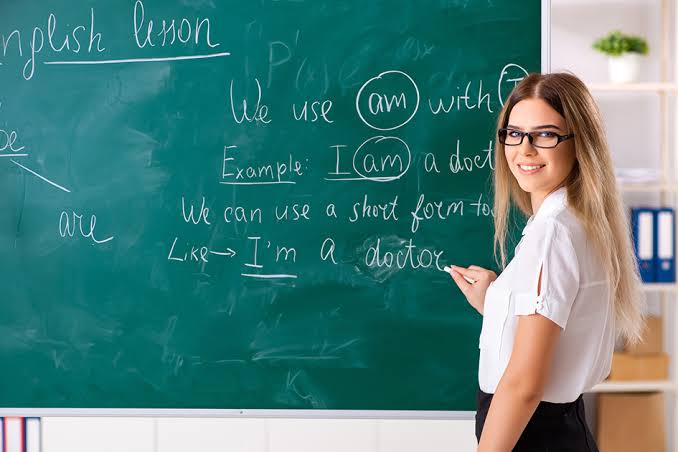 English lesson
We use am with I
be
Example: I am a doct
are
We can use a short form too
Like → I'm a doctor